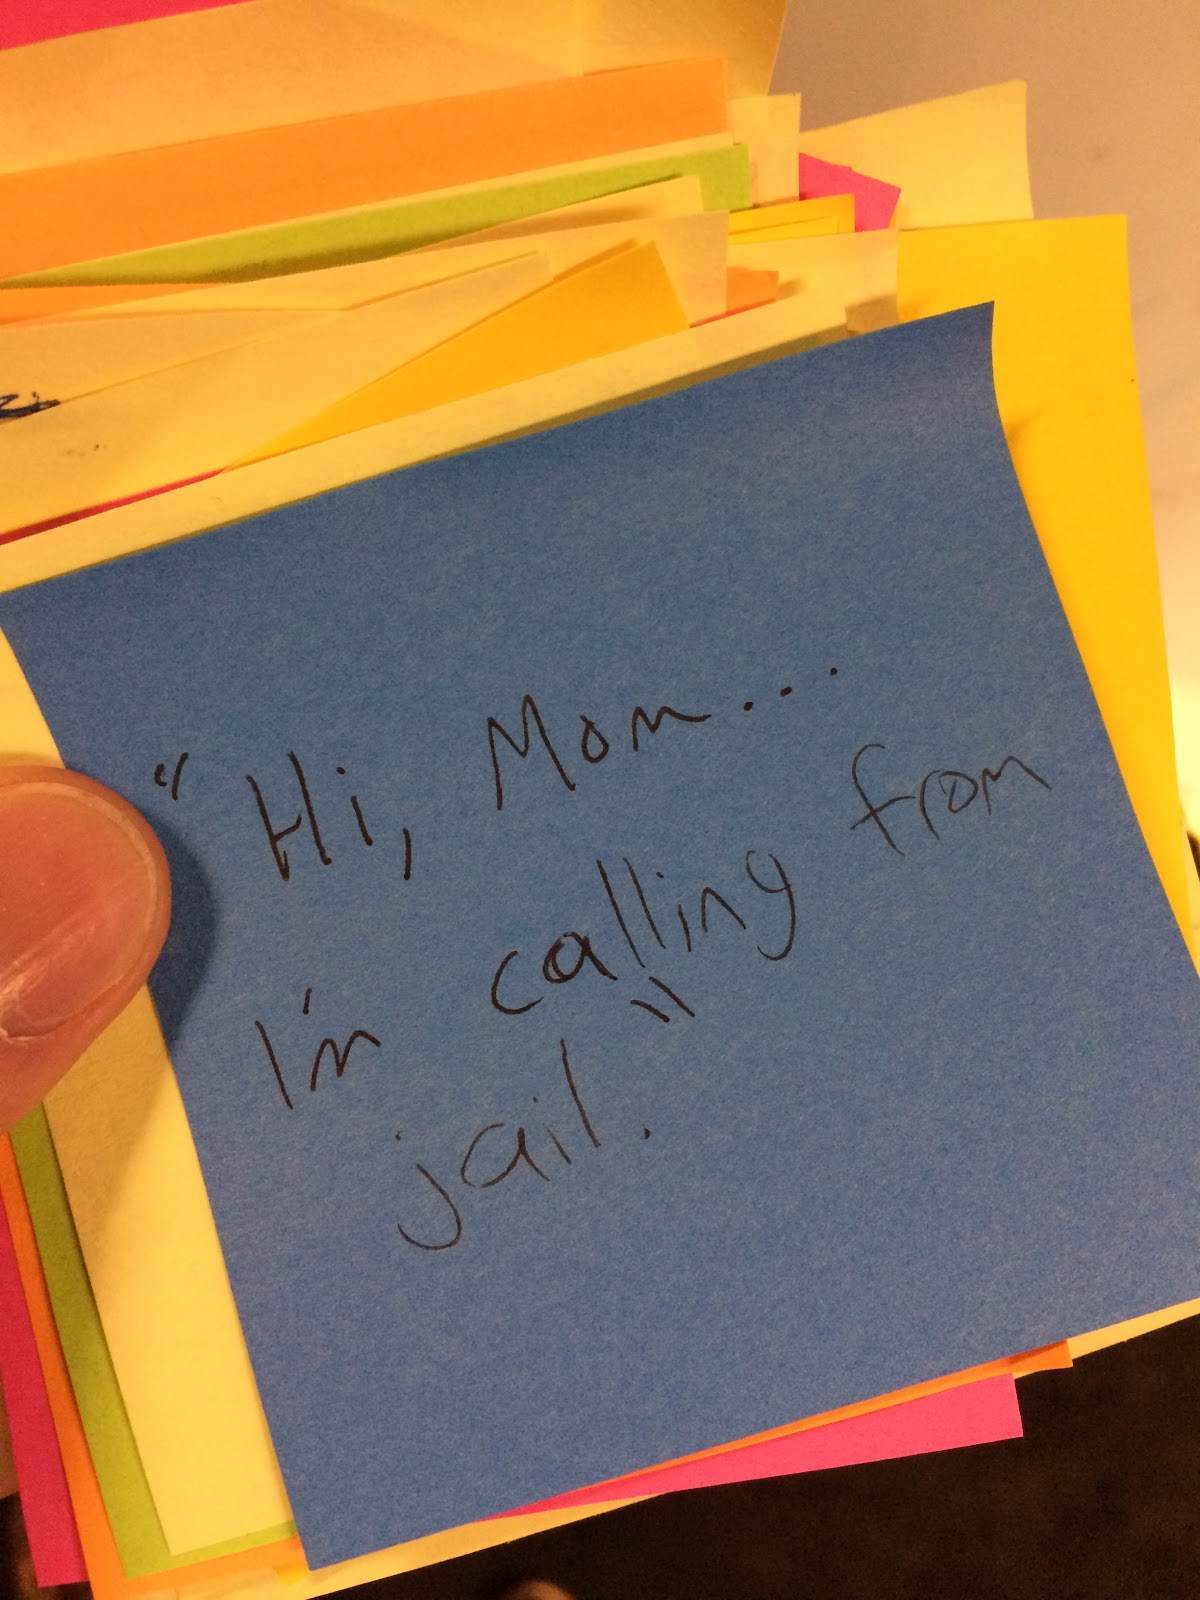 "Hi, Mom...
I'm calling from
jail."